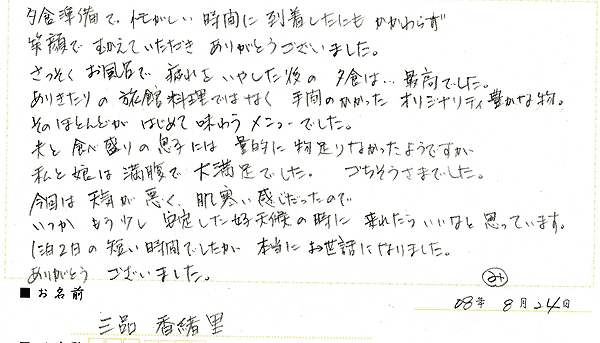 夕食準備で、忙がしい時間に到着したにもかかわらず
笑顔でむかえていただきありがとうございました。
さっそくお風呂で疲れをいやした後の夕食は…最高でした。
ありきたりの旅館料理ではなく手間のかかったオリジナリティ豊かな物。
そのほとんどがはじめて味わうメニューでした。
夫と食べ盛りの息子には量的に物足りなかったようですが
私と娘は満腹で大満足でした。ごちそうさまでした。
今回は天気が悪く、肌寒い感じだったので
いつかもう少し安定した好天候の時に来れたらいいなと思っています。
1泊2日の短い時間でしたが本当にお世話になりました。
ありがとうございました。
■お名前
08年8月24日
三品 香緒里